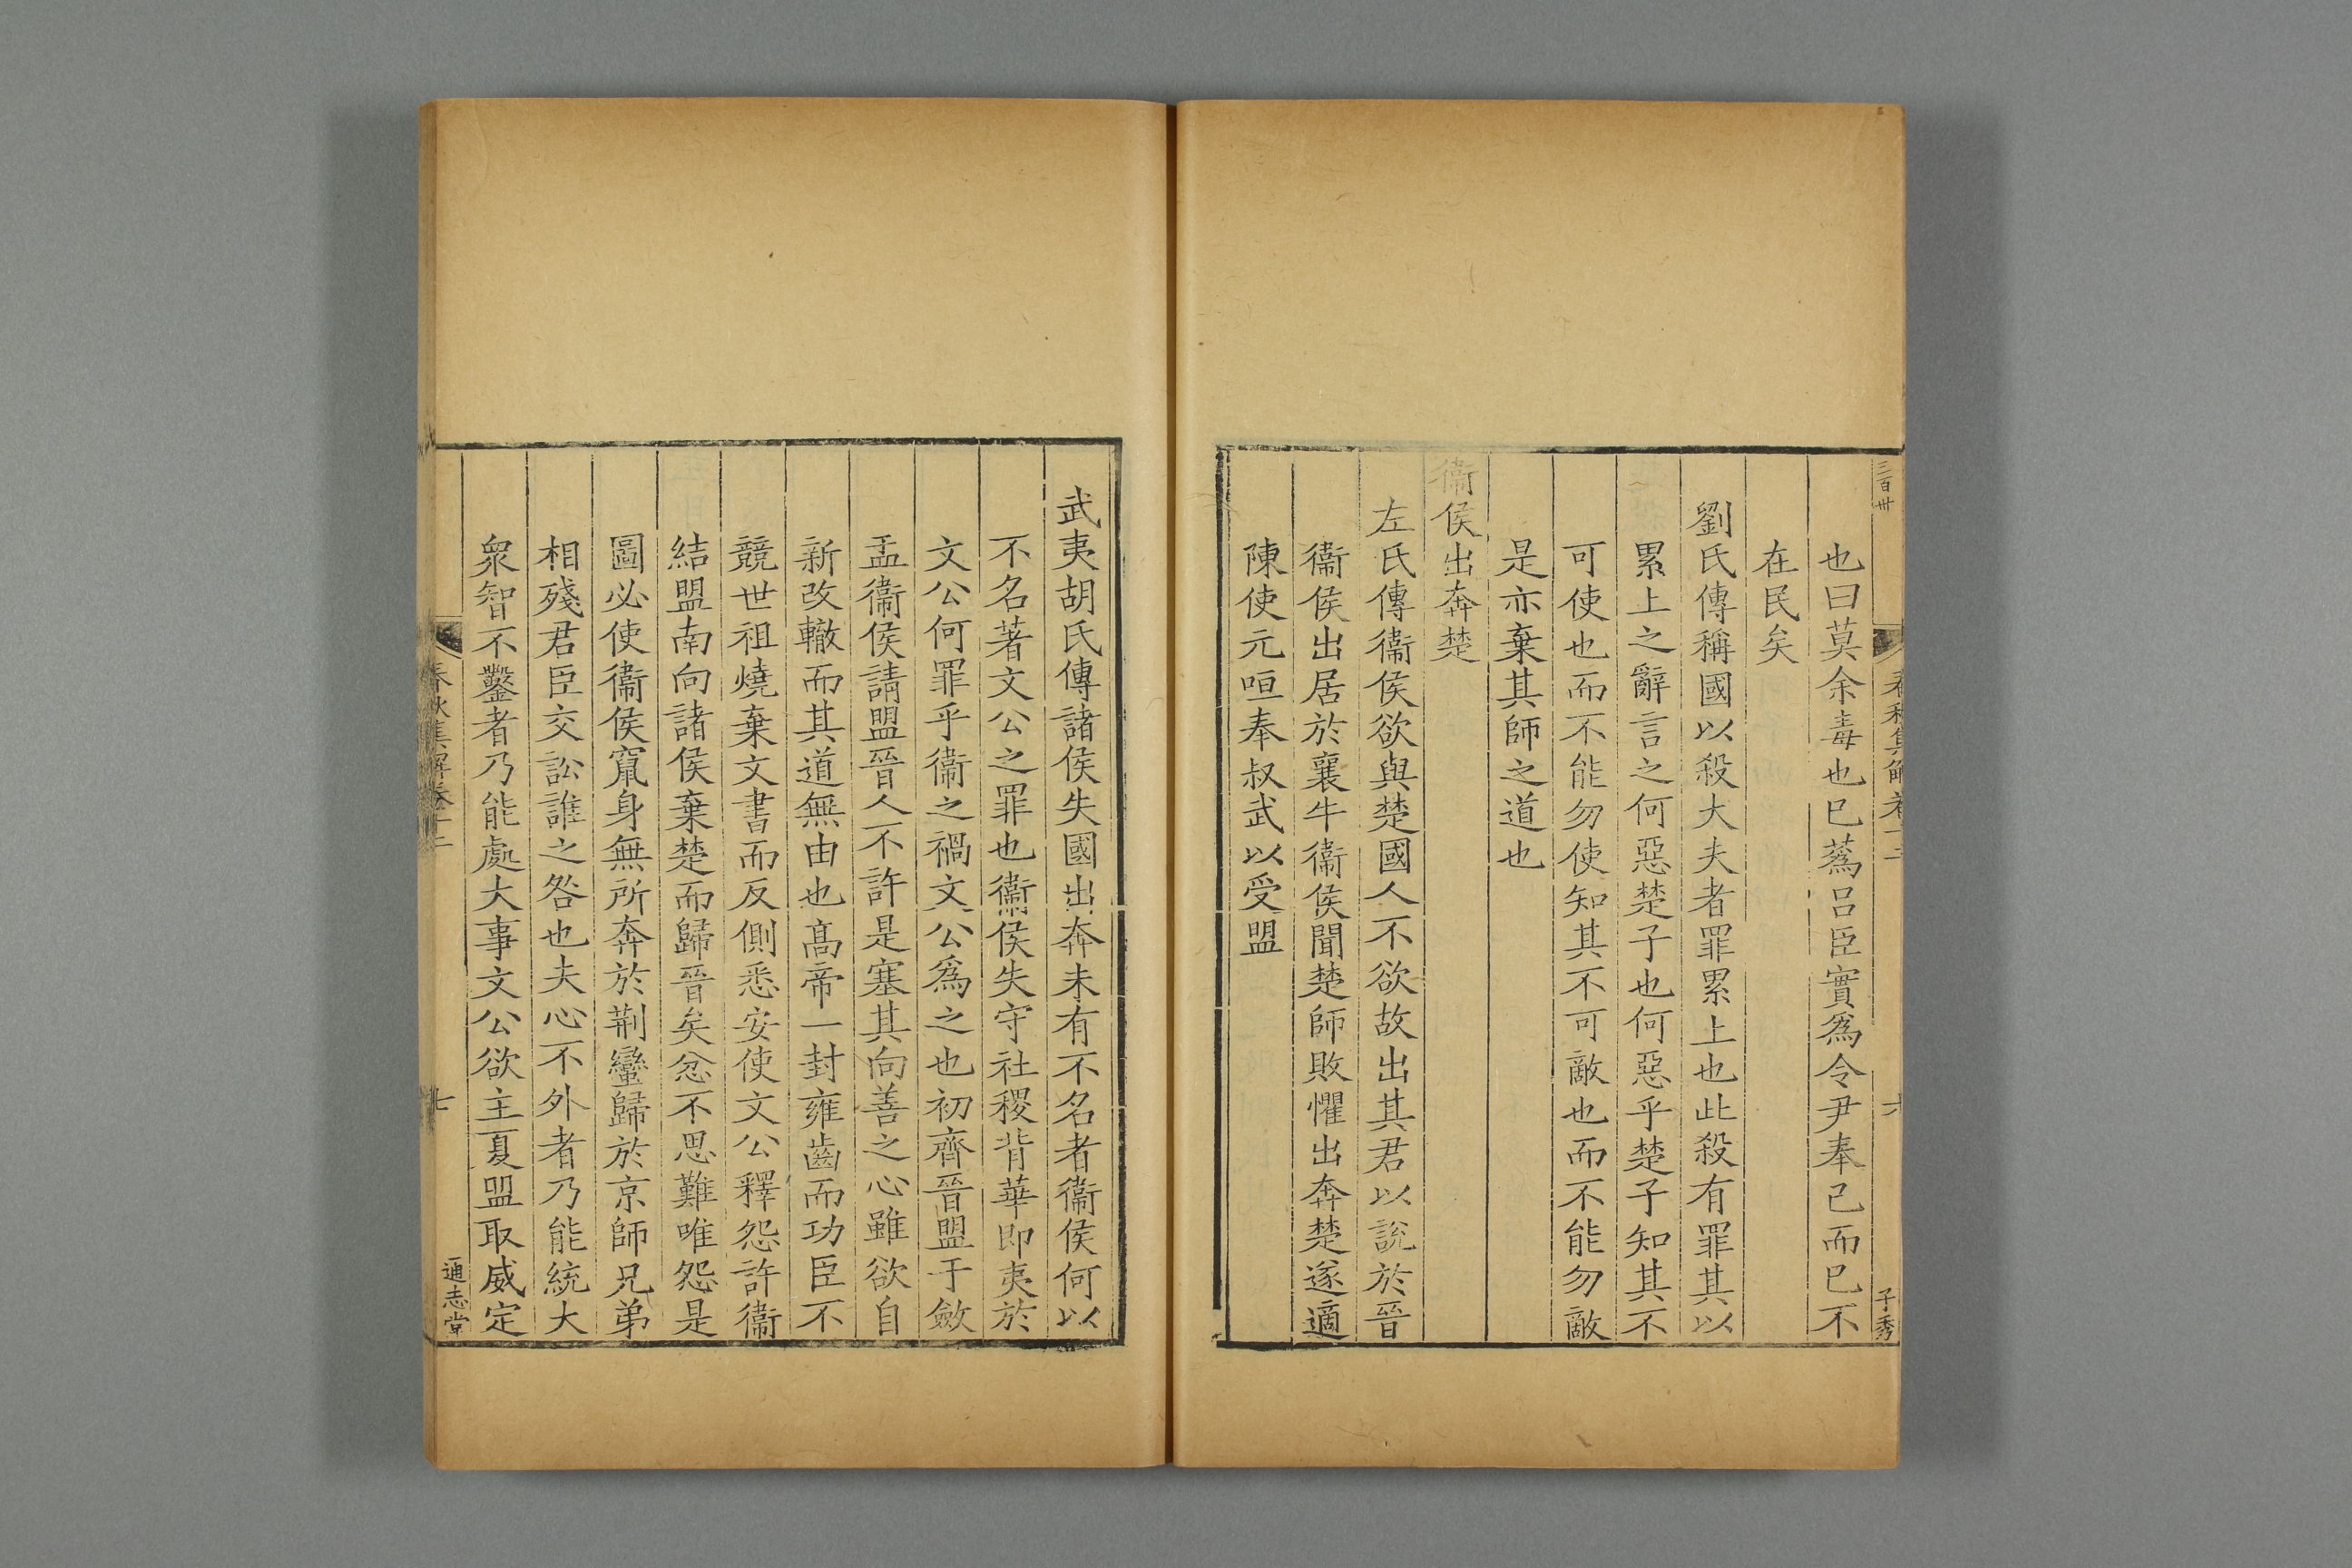 三百卅
春秋集解卷十二
六
子秀
也曰莫余毒也巳蔿吕臣實爲令尹奉己而巳不
在民矣
劉氏傳稱國以殺大夫者罪累上也此殺有罪其以
累上之辭言之何惡楚子也何惡乎楚子知其不
可使也而不能勿使知其不可敵也而不能勿敵
是亦棄其師之道也
衞侯出奔楚
左氏傳衞侯欲與楚國人不欲故出其君以說於晉
衞侯出居於襄牛衞侯聞楚師敗懼出奔楚遂適
陳使元咺奉叔武以受盟
武夷胡氏傳諸侯失國出奔未有不名者衞侯何以
不名著文公之罪也衞侯失守社稷背華即夷於
文公何罪乎衞之禍文公爲之也初齊晉盟于斂
盂衞侯請盟晉人不許是塞其向善之心雖欲自
新改轍而其道無由也髙帝一封雍齒而功臣不
競世祖燒棄文書而反側悉安使文公釋怨許衞
結盟南向諸侯棄楚而歸晉矣忿不思難唯怨是
圖必使衞侯竄身無所奔於荆蠻歸於京師兄弟
相殘君臣交訟誰之咎也夫心不外者乃能統大
衆智不鑿者乃能處大事文公欲主夏盟取威定
春秋集解卷十二
七
通志堂